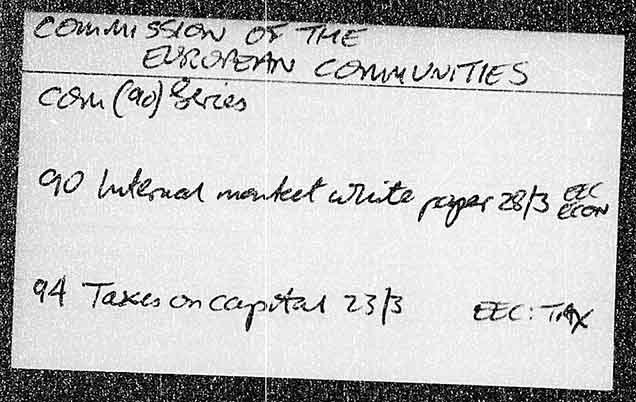 COMMISSION OF THE
EUROPEAN COMMUNITIES
COM (90) Series
90 Internal market white paper 28/3 EEC
ECON
94 Taxes on capital 23/3 EEC: TAX